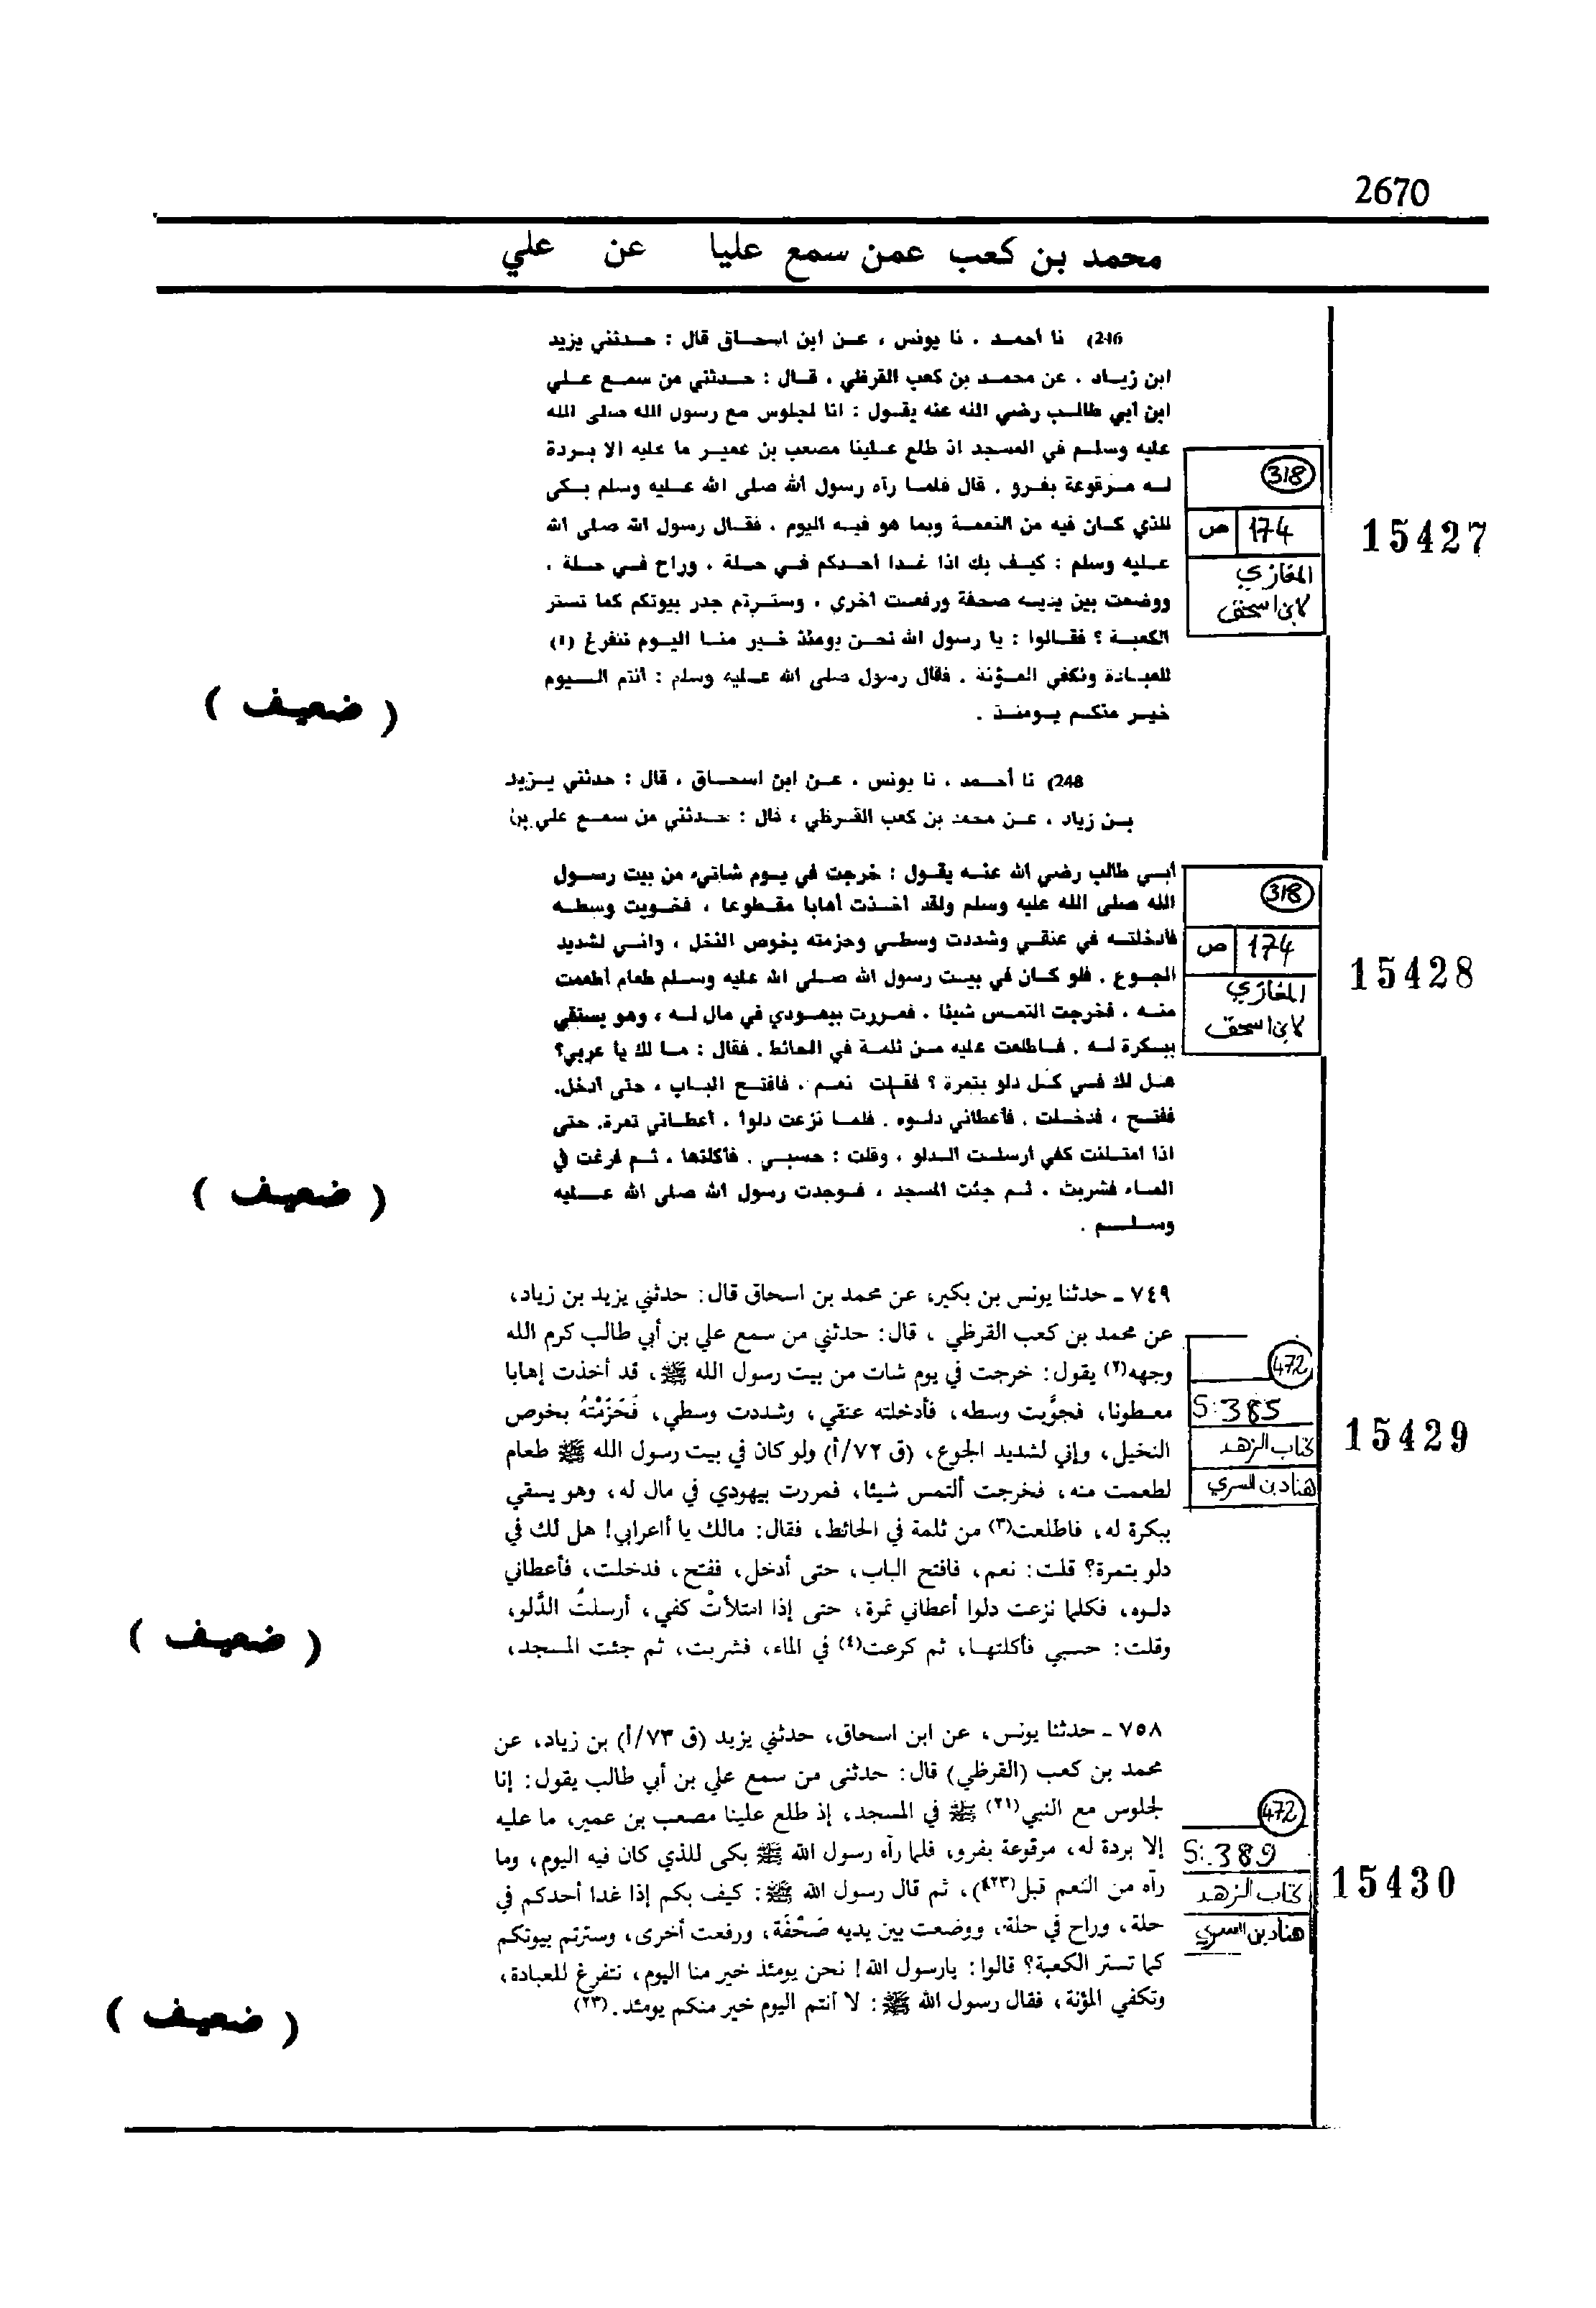 2670
محمد بن كعب عمن سمع عليا عن علي
246) نا أحمد ، نا يونس ، عن ابن اسحاق قال : حدثني يزيد
ابن زياد ، عن محمد بن كعب القرظي ، قال : حدثني من سمع علي
ابن أبي طالب رضي الله عنه يقول : انا لجلوس مع رسول الله صلى الله
عليه وسلم في المسجد اذ طلع علينا مصعب بن عمير ما عليه الا بردة
له مرقوعة بفرو ، قال فلما رآه رسول الله صلى الله عليه وسلم بكى
للذي كان فيه من النعمة وبما هو فيه اليوم ، فقال رسول الله صلى الله
عليه وسلم : كيف بك اذا غدا أحدكم في حلة ، وراح في حلة ،
ووضعت بين يديه صحفة ورفعت أخرى ، وسترتم جدر بيوتكم كما تستر
الكعبة ؟ فقالوا : يا رسول الله نحن يومئذ خير منا اليوم نتفرغ (1)
للعبادة ونكفي المؤنة ، فقال رسول صلى الله عليه وسلم : أنتم اليوم
خير منكم يومئذ .
318
174 ص
المغازي
لابن اسحق
15427
( ضعيف )
248) نا أحمد ، نا يونس ، عن ابن اسحاق ، قال : حدثني يزيد
بن زياد ، عن محمد بن كعب القرظي ، قال : حدثني من سمع علي بن
أبي طالب رضي الله عنه يقول : خرجت في يوم شاتيء من بيت رسول
الله صلى الله عليه وسلم ولقد اخذت أهابا مقطوعا ، فخويت وسطه
فأدخلته في عنقي وشددت وسطي وحزمته بخوص النخل ، واني لشديد
الجوع ، فلو كان في بيت رسول الله صلى الله عليه وسلم طعام أطعمت
منه ، فخرجت التمس شيئا ، فمررت بيهودي في مال له ، وهو يستقي
ببكرة له ، فاطلعت عليه من ثلمة في الحائط ، فقال : ما لك يا عربي؟
هل لك في كل دلو بتمرة ؟ فقلت نعم ، فافتح الباب ، حتى أدخل،
ففتح ، فدخلت ، فأعطاني دلوه ، فلما نزعت دلوا ، أعطاني تمرة، حتى
اذا امتلئت كفي أرسلت الدلو ، وقلت : حسبي ، فأكلتها ، ثم فرغت في
الماء فشربت ، ثم جئت المسجد ، فوجدت رسول الله صلى الله عليه
وسلم .
318
174 ص
المغازي
لابن اسحق
15428
( ضعيف )
٧٤٩ ـ حدثنا يونس بن بكير، عن محمد بن اسحاق قال: حدثني يزيد بن زياد،
عن محمد بن كعب القرظي ، قال: حدثني من سمع علي بن أبي طالب كرم الله
وجهه(٢) يقول: خرجت في يوم شات من بيت رسول الله ﷺ، قد أخذت إهابا
معطونا، فجوَّبت وسطه، فأدخلته عنقي، وشددت وسطي، فَحَزَمْتُهُ بخوص
النخيل، وإني لشديد الجوع، (ق ٧٢/أ) ولو كان في بيت رسول الله ﷺ طعام
لطعمت منه، فخرجت ألتمس شيئا، فمررت بيهودي في مال له، وهو يسقي
ببكرة له، فاطلعت(٣) من ثلمة في الحائط، فقال: مالك يا أاعرابي! هل لك في
دلو بتمرة؟ قلت: نعم، فافتح الباب، حتى أدخل، ففتح، فدخلت، فأعطاني
دلوه، فكلما نزعت دلوا أعطاني تمرة، حتى إذا امتلأتْ كفي، أرسلتُ الدَّلو،
وقلت: حسبي فأكلتها، ثم كرعت(٤) في الماء، فشربت، ثم جئت المسجد،
472
S: 385
كتاب الزهد
هناد بن السري
15429
( ضعيف )
٧٥٨ ـ حدثنا يونس، عن ابن اسحاق، حدثني يزيد (ق ٧٣/أ) بن زياد، عن
محمد بن كعب (القرظي) قال: حدثنى من سمع علي بن أبي طالب يقول: إنا
لجلوس مع النبي(٢١) ﷺ في المسجد، إذ طلع علينا مصعب بن عمير، ما عليه
إلا بردة له، مرقوعة بفرو، فلما رآه رسول الله ﷺ بكى للذي كان فيه اليوم، وما
رآه من النعم قبل، ثم قال رسول الله ﷺ: كيف بكم إذا غدا أحدكم في
حلة، وراح في حلة، ووضعت بين يديه صَحْفَة، ورفعت أخرى، وسترتم بيوتكم
كما تستر الكعبة؟ قالوا: يارسول الله! نحن يومئذ خير منا اليوم، نتفرغ للعبادة،
وتكفي المؤنة، فقال رسول الله ﷺ: لا أنتم اليوم خير منكم يومئذ.(٢٣)
472
S: 389
كتاب الزهد
هناد بن السري
15430
( ضعيف )